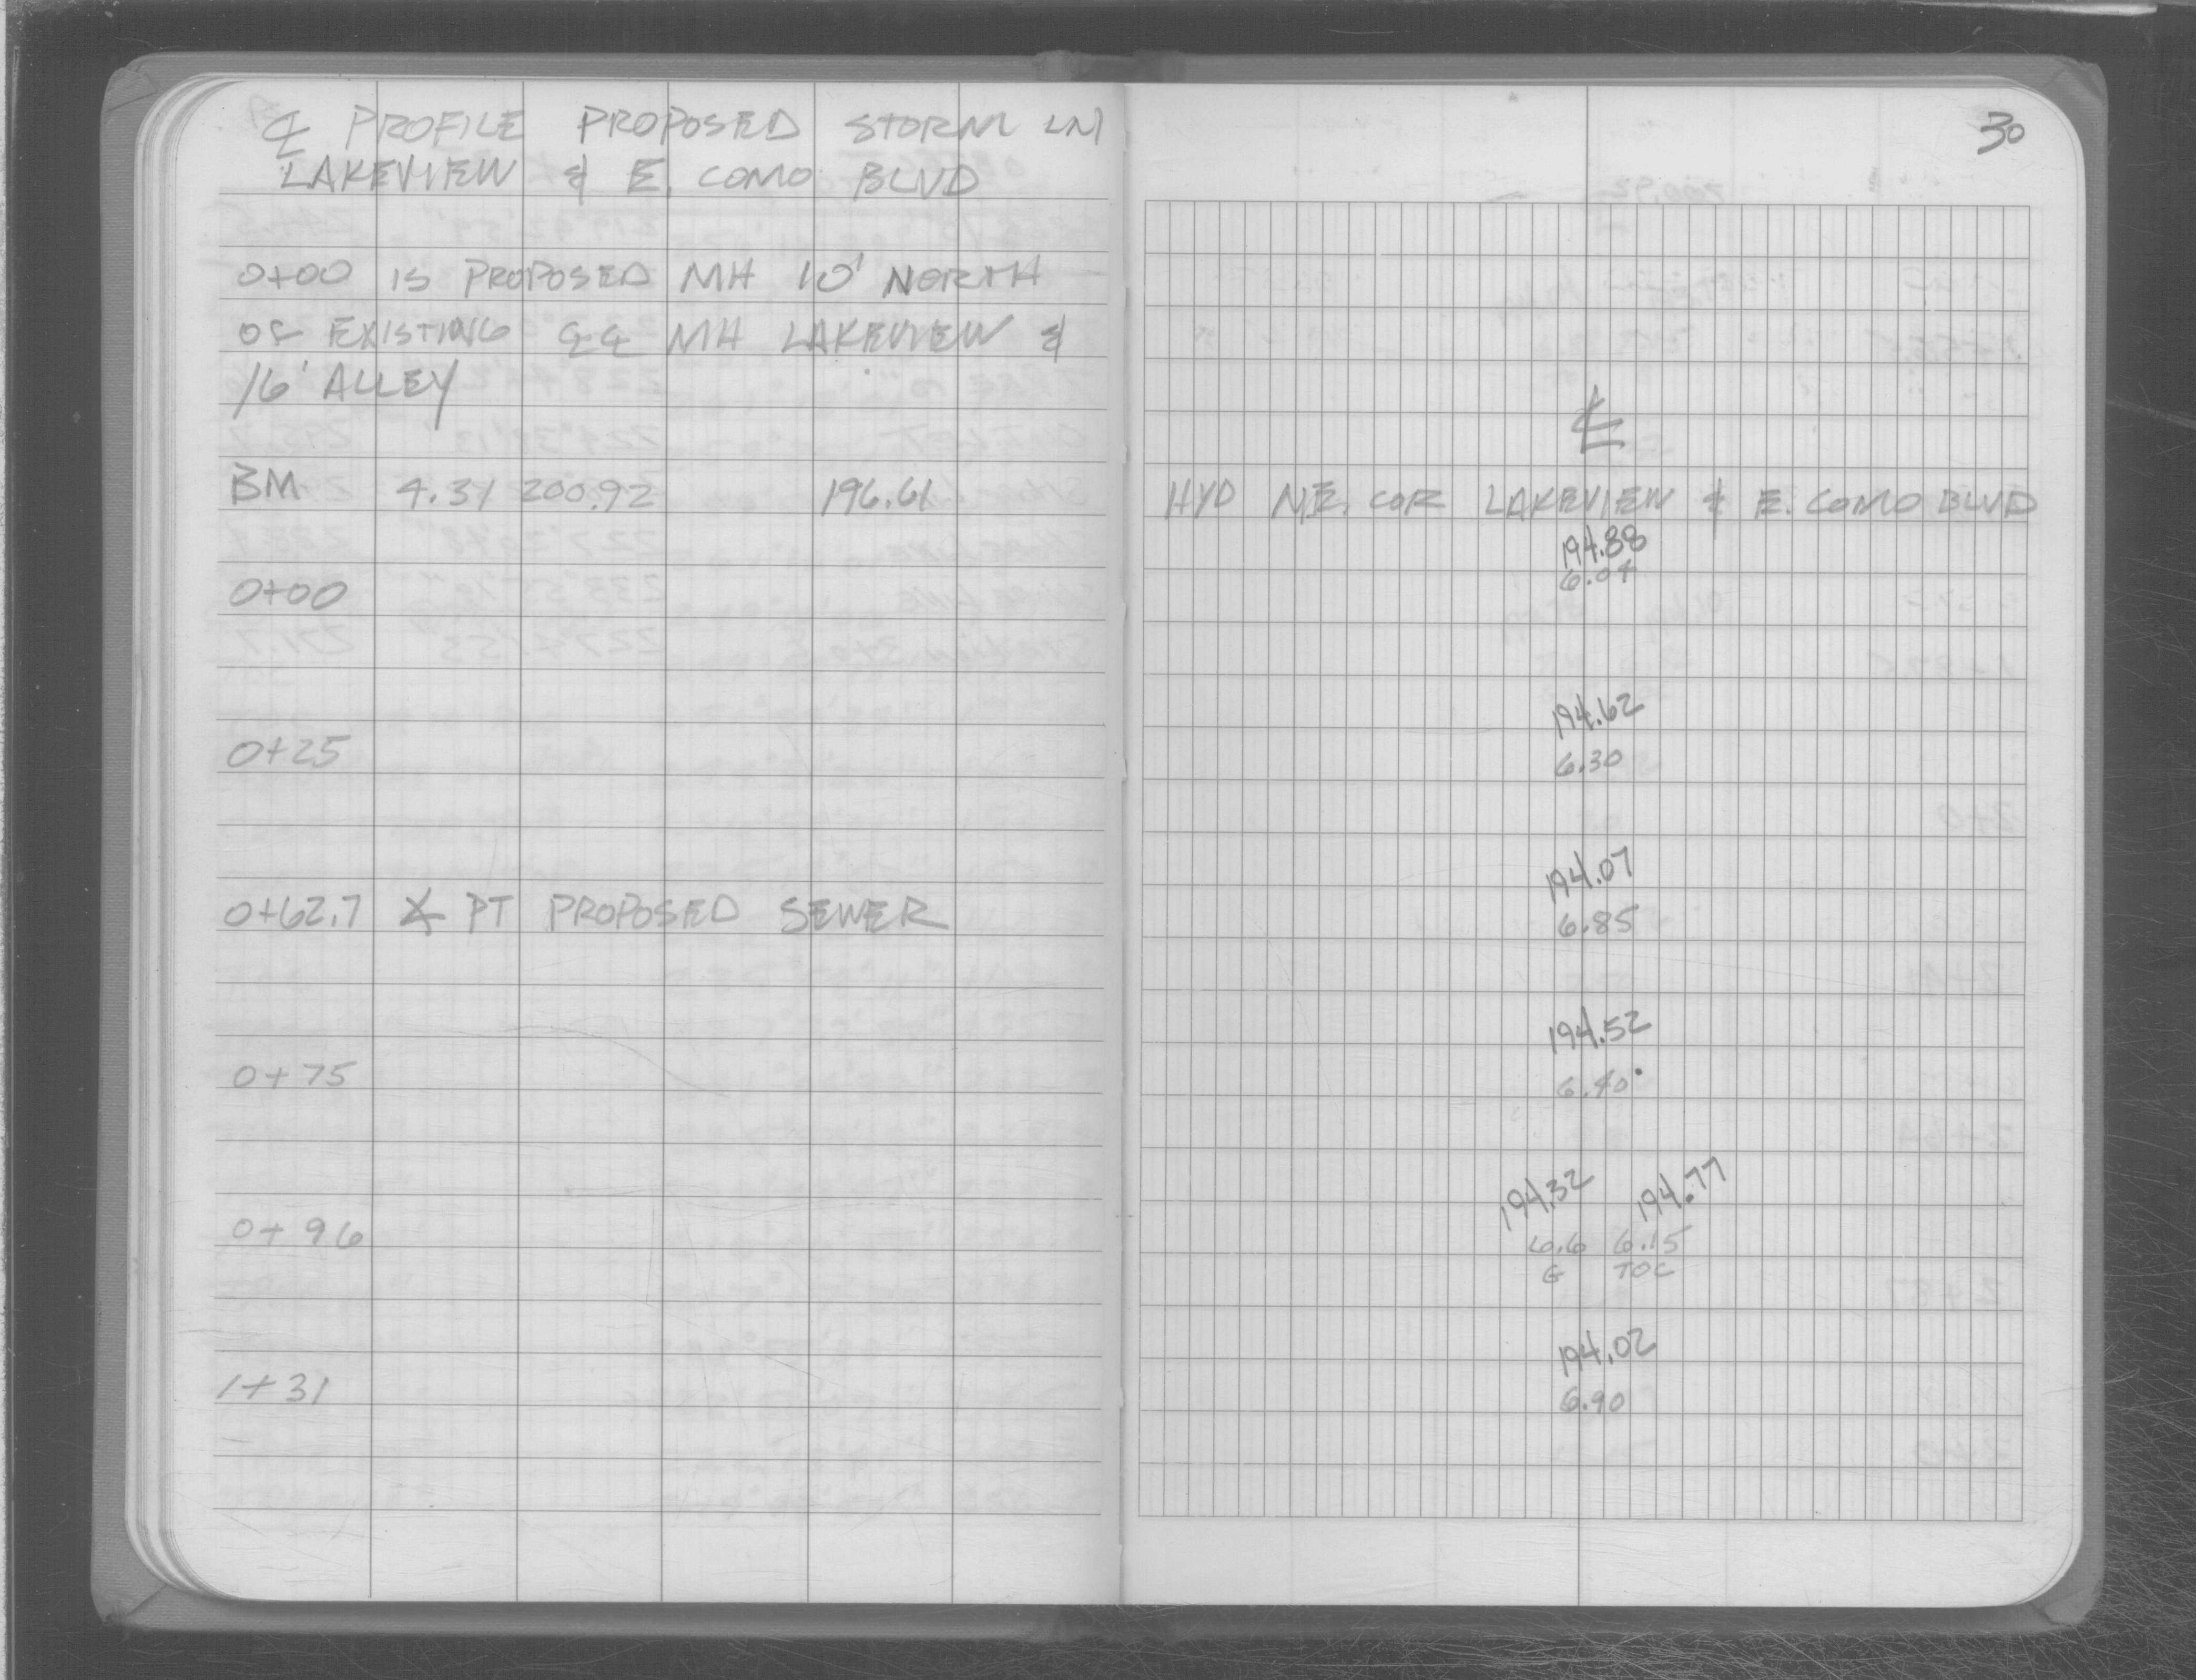 ℄ PROFILE PROPOSED STORM LN
LAKEVIEW & E. COMO BLVD
0+00 IS PROPOSED MH 10' NORTH
OF EXISTING ℄℄ MH LAKEVIEW &
16' ALLEY
BM 4.31 200.92 196.61
0+00
0+25
0+62.7 ∡ PT PROPOSED SEWER
0+75
0+96
1+31
30
℄
HYD N.E. COR LAKEVIEW & E. COMO BLVD
194.88
6.04
194.62
6.30
194.07
6.85
194.52
6.40
194.32 194.77
6.6 6.15
G TOC
194.02
6.90